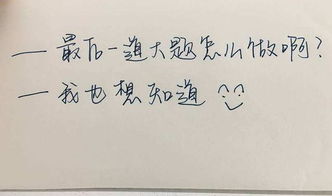 — 最后一道大题怎么做啊？
— 我也想知道